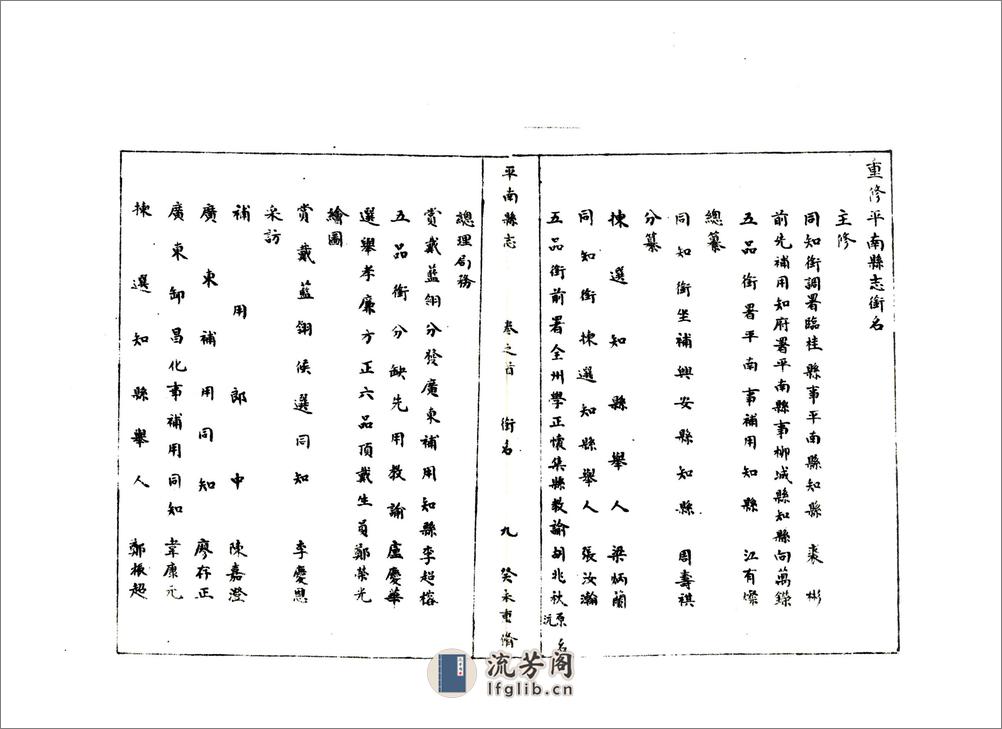 重修平南縣志銜名
主修
同知銜調署臨桂縣事平南縣知縣 裘彬
前先補用知府署平南縣事柳城縣知縣向萬鑅
五品銜署平南事補用知縣 江有燦
總纂
同知銜坐補興安縣知縣 周壽祺
分纂
揀選知縣舉人 梁炳蘭
同知銜揀選知縣舉人 張汝瀚
五品銜前署全州學正懷集縣教諭胡兆秋原名沅
平南縣志 卷之首 銜名 九 癸未重脩
總理局務
賞戴藍翎分發廣東補用知縣李超榕
五品銜分缺先用教諭盧慶華
選舉孝廉方正六品頂戴生員鄭榮光
繪圖
賞戴藍翎候選同知 李慶恩
采訪
補用郎中 陳嘉澄
廣東補用同知 廖存正
廣東卸昌化事補用同知 韋康元
揀選知縣舉人 鄭振超
流芳阁
lfglib.cn